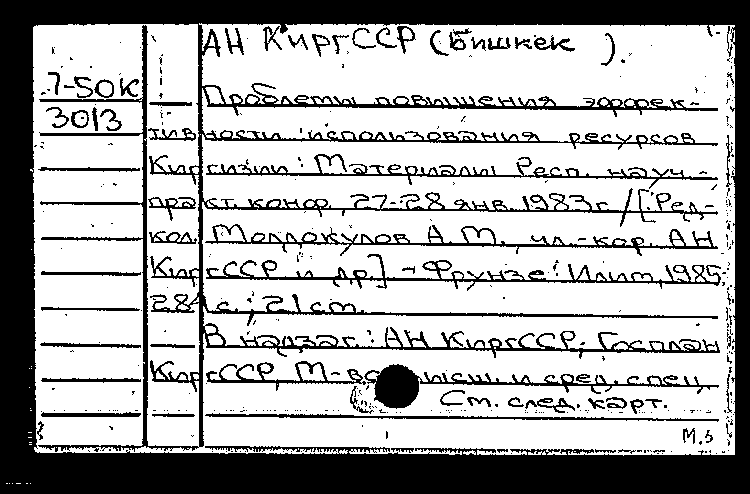 АН КиргССР (Бишкек ).
7-50К
Проблемы повышения эффек-
3013
тивности использования ресурсов
Киргизии: Материалы Респ. науч.-
практ. конф., 27-28 янв. 1983г. / [Ред-
кол. Молдокулов А.М., чл.-кор. АН
КиргССР и др.] - Фрунзе: Илим, 1985
284 с.; 21 см.
В надзаг.: АН КиргССР, Госплан
КиргССР, М-во высш. и сред. спец.
См. след. карт.
М.5